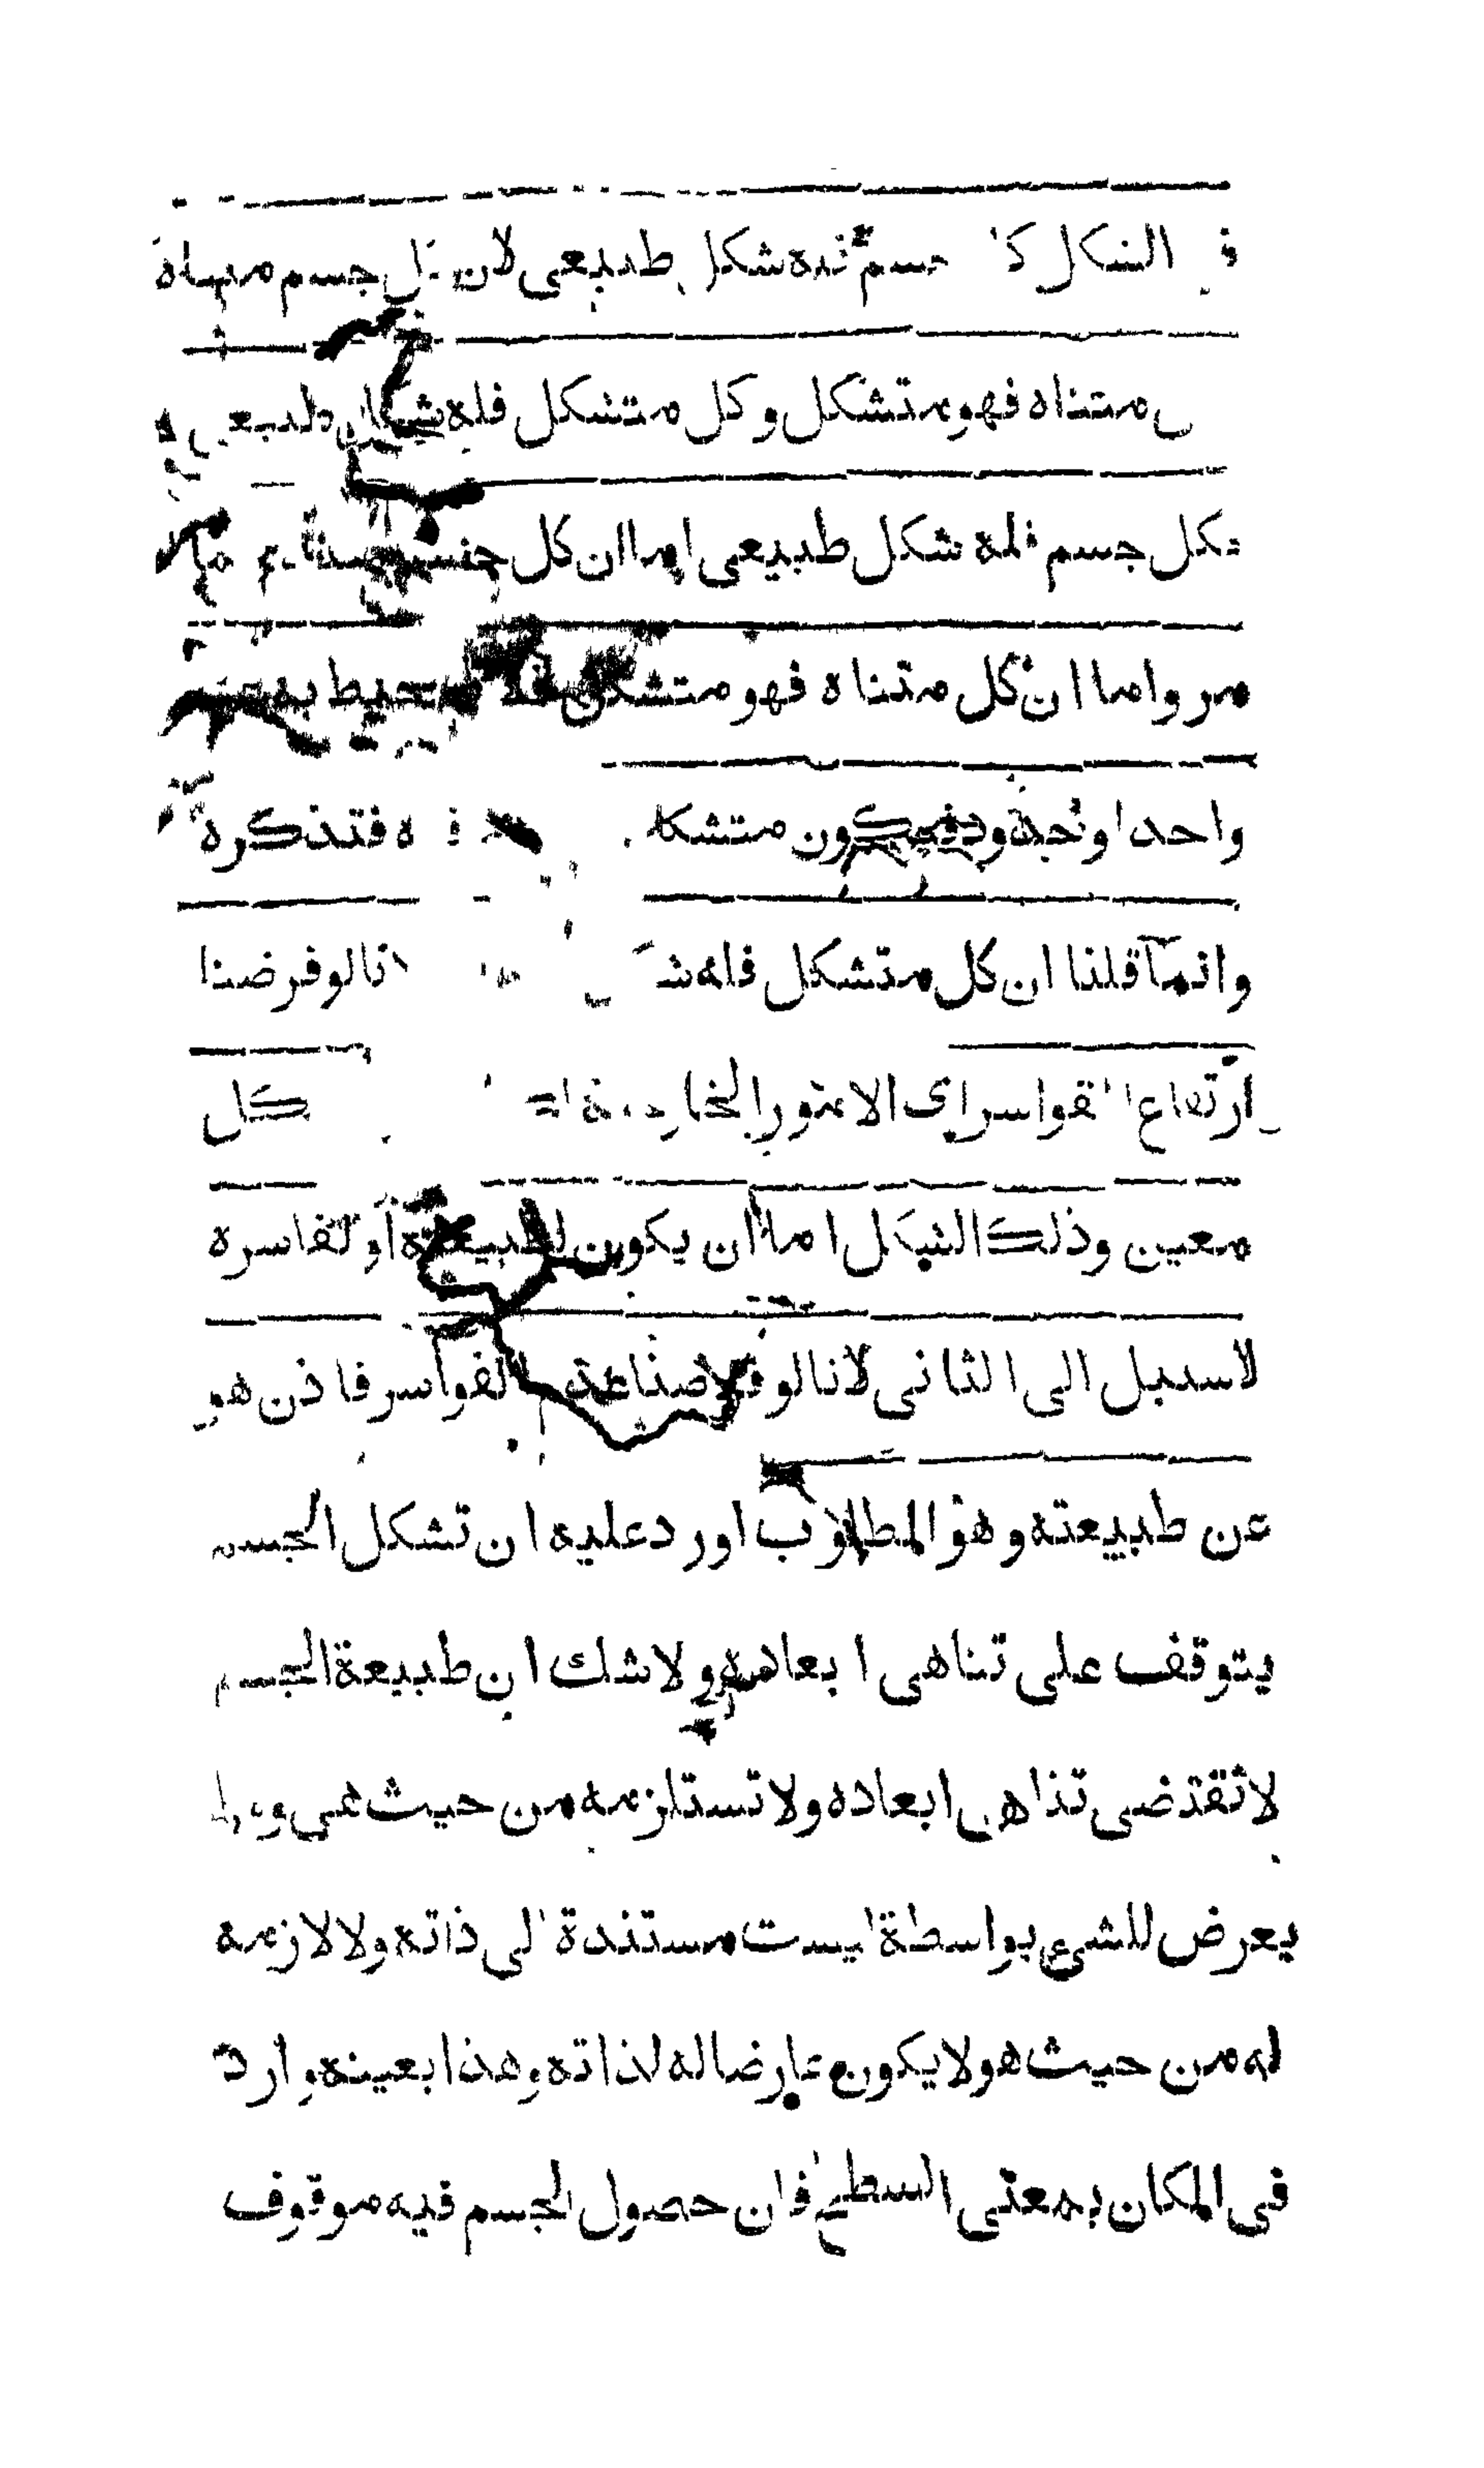 في الشكل كل جسم فله شكل طبيعي لان كل جسم متناه
وكل متناه فهو متشكل وكل متشكل فله شكل طبيعي
فكل جسم فله شكل طبيعي اما ان كل جسم متناه فلما
مر واما ان كل متناه فهو متشكل فلانه يحيط به حد
واحد او حدود فيكون متشكلا فتذكره
وانما قلنا ان كل متشكل فله انا لو فرضنا
ارتفاع القواسر اي الامور الخارجة كل
معين وذلك الشكل اما ان يكون لطبيعته او لقاسره
لا سبيل الى الثاني لانا لو فرضنا عدم القواسر فاذن هو
عن طبيعته وهو المطلوب اورد عليه ان تشكل الجسم
يتوقف على تناهي ابعاده ولا شك ان طبيعة الجسم
لا تقتضي تناهي ابعاده ولا تستلزمه من حيث هي وما
يعرض للشيء بواسطة ليست مستندة الى ذاته ولا لازمة
له من حيث هو لا يكون عارضا له لذاته وهذا بعينه وارد
في المكان بمعنى السطح فان حصول الجسم فيه موقوف